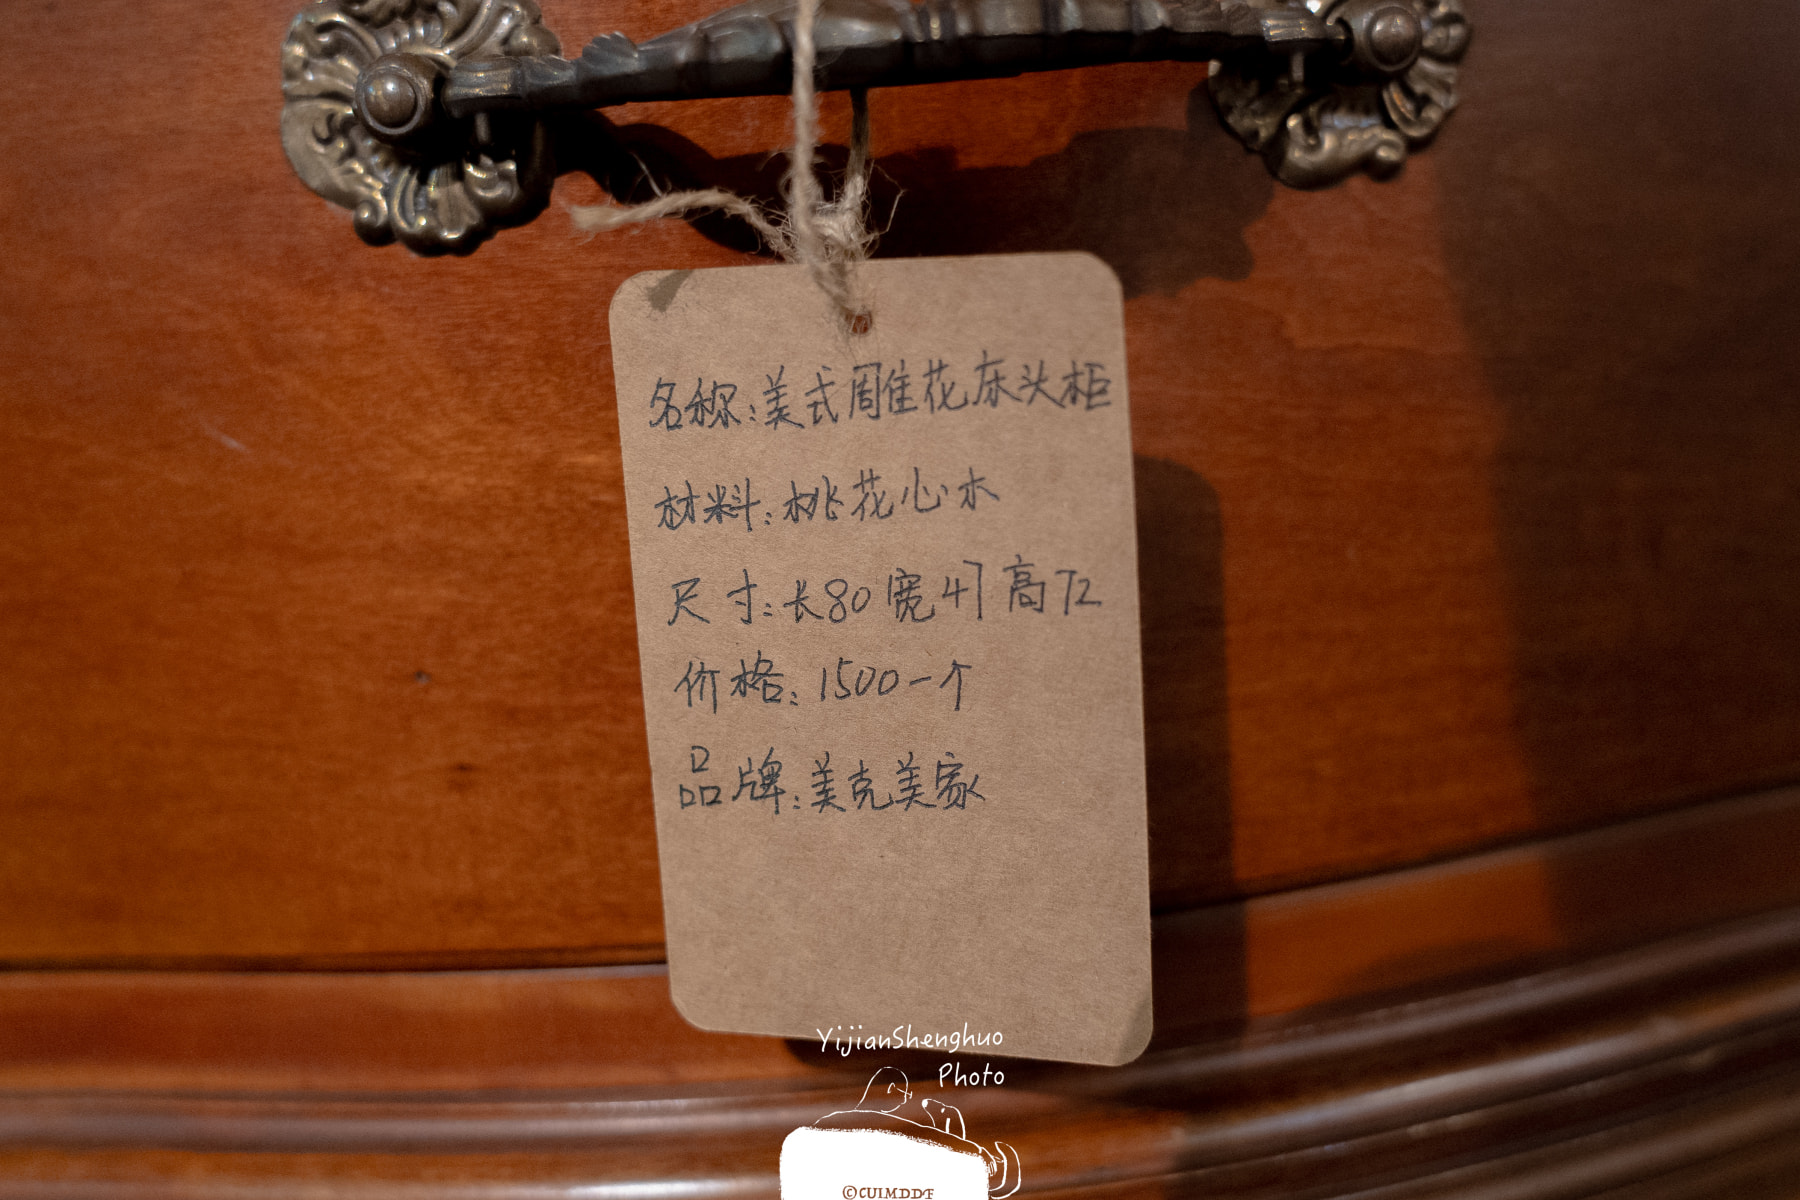 名称:美式雕花床头柜
材料:桃花心木
尺寸:长80宽47高72
价格:1500一个
品牌:美克美家
YijianShenghuo
Photo
©CUIMDDF